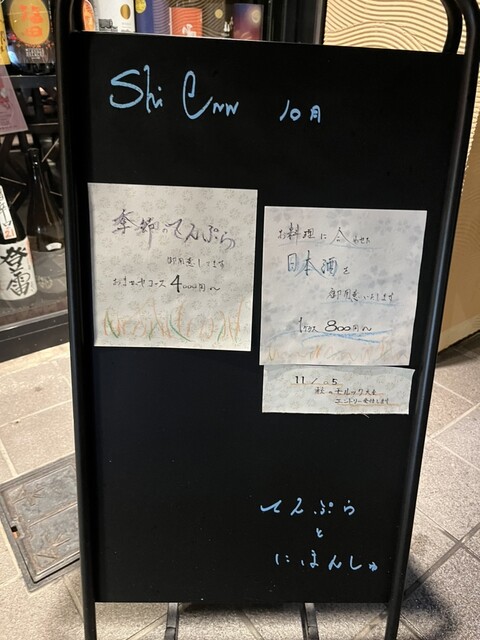 Shi Cnn 10月
季節のてんぷら
御用意してます
おまかせコース 4000円〜
お料理に合わせた
日本酒を
御用意いたします
1グラス 800円〜
11/15
秋のモルック大会
エントリー受付します
てんぷら
と
にほんしゅ